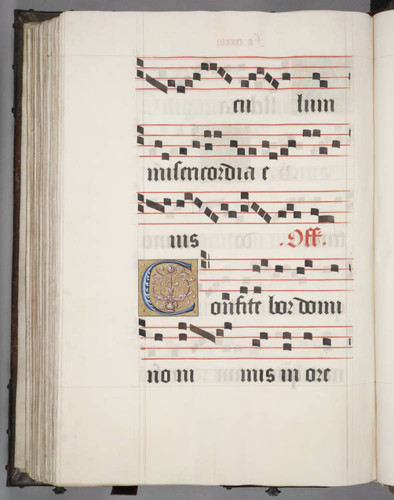 cu lum
misericordia e
ius .Off.
Confite bor domi
no ni mis in ore